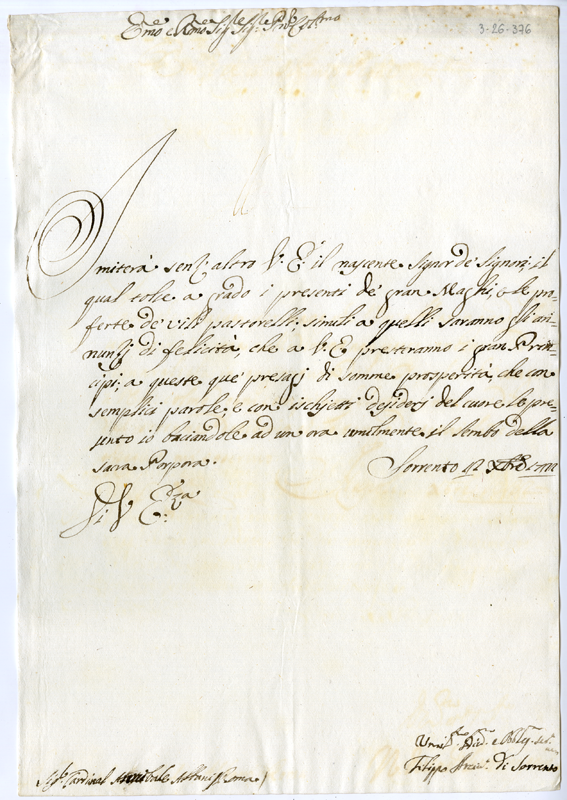 Em̃o e Rm̃o Sig.re Sig.re P.rõn Col.mo
3-26-376
Imiterà senz'altro V: E: il nascente Signor de' Signori, il
qual tolse a grado i presenti de' gran Maghi, e le pro=
ferte de' vili pastorelli; simili a quelli saranno gli an=
nunzj di felicità, che a V: E presteranno i gran Prin=
cipi; a queste que' presagj di somme prosperità, che con
semplici parole, e con ischietti desiderj del cuore le pre=
sento io baciandole ad un'ora umilmente il lembo della
sacra Porpora.
Sorrento 12 Xbre
Di V. E.za
Filippo Arciv.o di Sorrento
Sig.r Cardinal Annibale Albani Roma